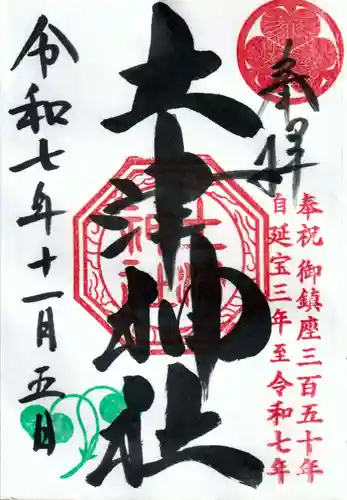 奉拝
奉祝 御鎮座三百五十年
自延宝三年至令和七年
土津神社
令和七年十一月五日